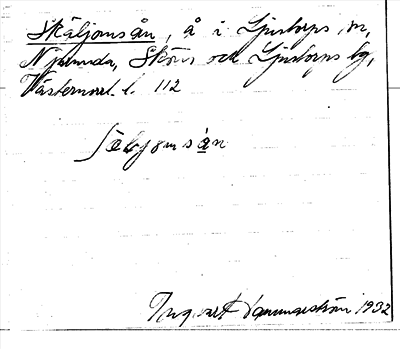 Skäljomsån, å i Ljustorps sn,
Njurunda, Sköns och Ljustorps tg,
Västernorrl. l. 112
Säljomsån
Ingvart Dammeström 1932